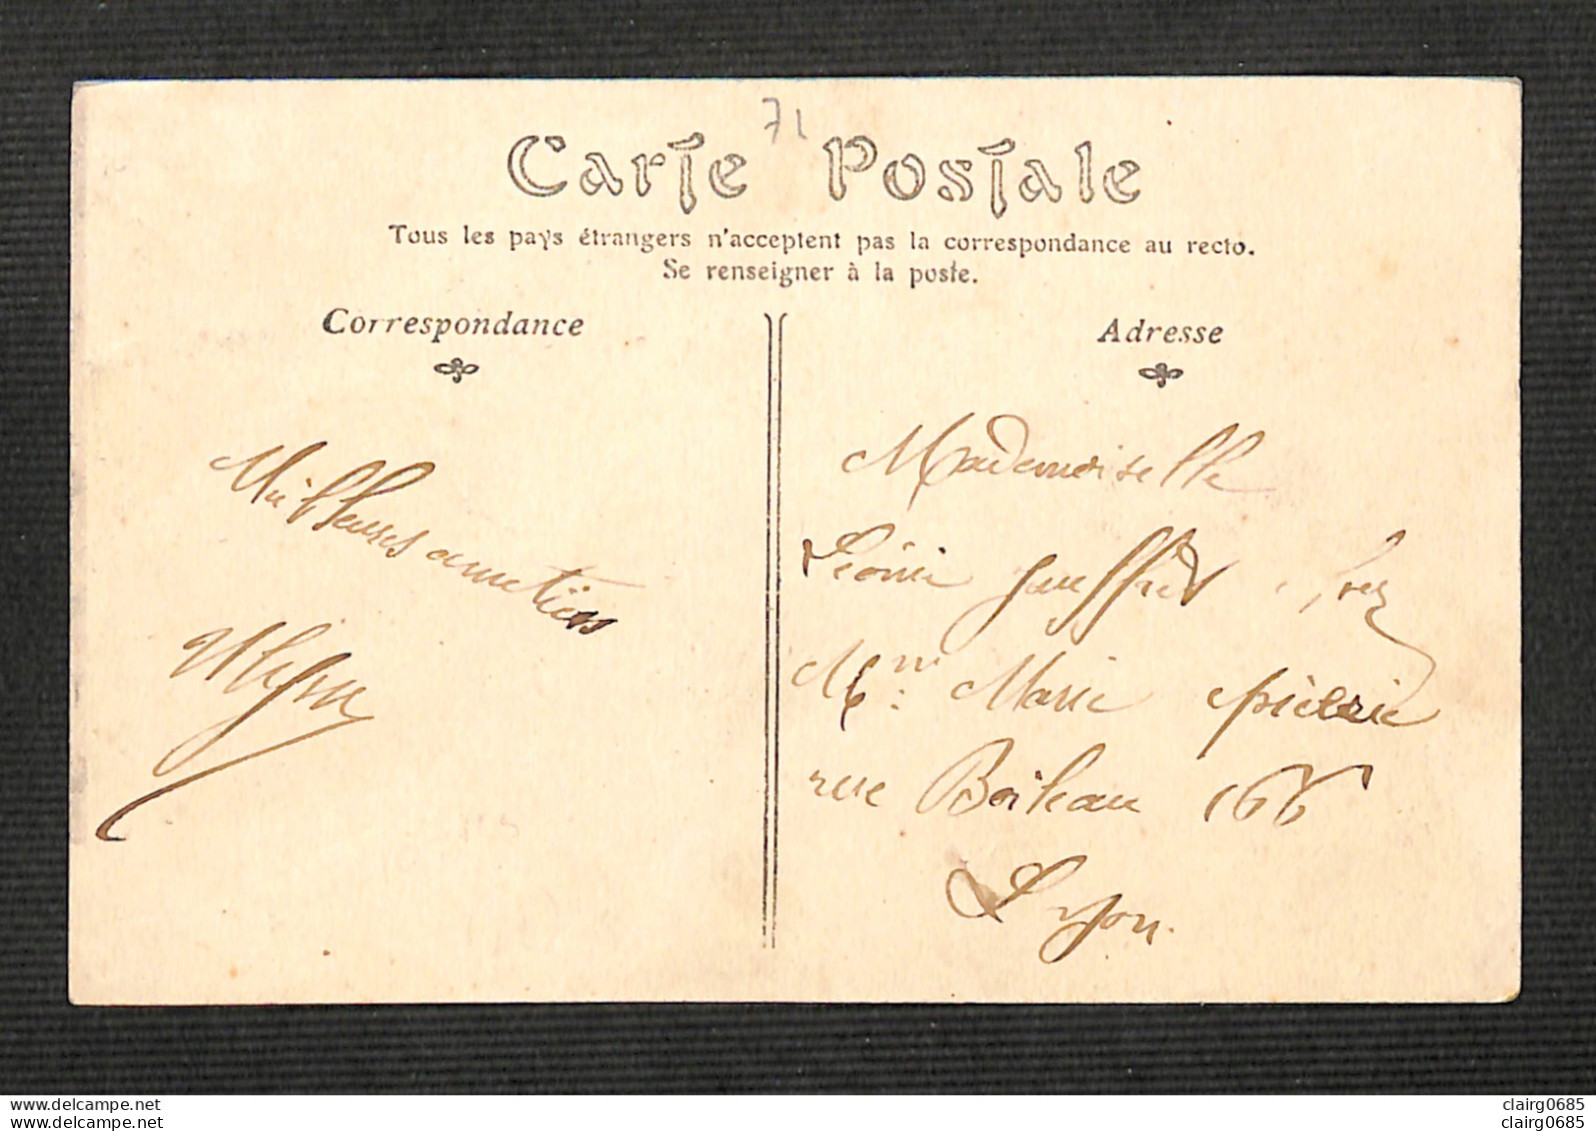 71
Carte Postale
Tous les pays étrangers n'acceptent pas la correspondance au recto.
Se renseigner à la poste.
Correspondance
Meilleures amitiés
Adresse
Mademoiselle
Léonie Jauffret chez
Mme Marie
rue Boileau 166
Lyon.
www.delcampe.net
www.delcampe.net
clairg0685
clairg0685